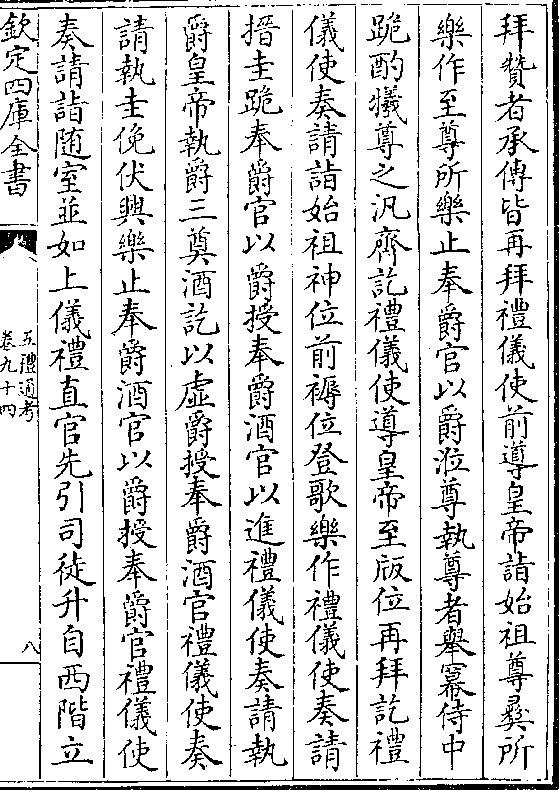 拜贊者承傳皆再拜禮儀使前導皇帝詣始祖尊彞所
樂作至尊所樂止奉爵官以爵涖尊執尊者舉冪侍中
跪酌犧尊之汎齊訖禮儀使導皇帝至版位再拜訖禮
儀使奏請詣始祖神位前褥位登歌樂作禮儀使奏請
搢圭跪奉爵官以爵授奉爵酒官以進禮儀使奏請執
爵皇帝執爵三奠酒訖以虛爵授奉爵酒官禮儀使奏
請執圭俛伏興樂止奉爵酒官以爵授奉爵官禮儀使
奏請詣隨室並如上儀禮直官先引司徒升自西階立
欽定四庫全書
五禮通考
卷九十四
八